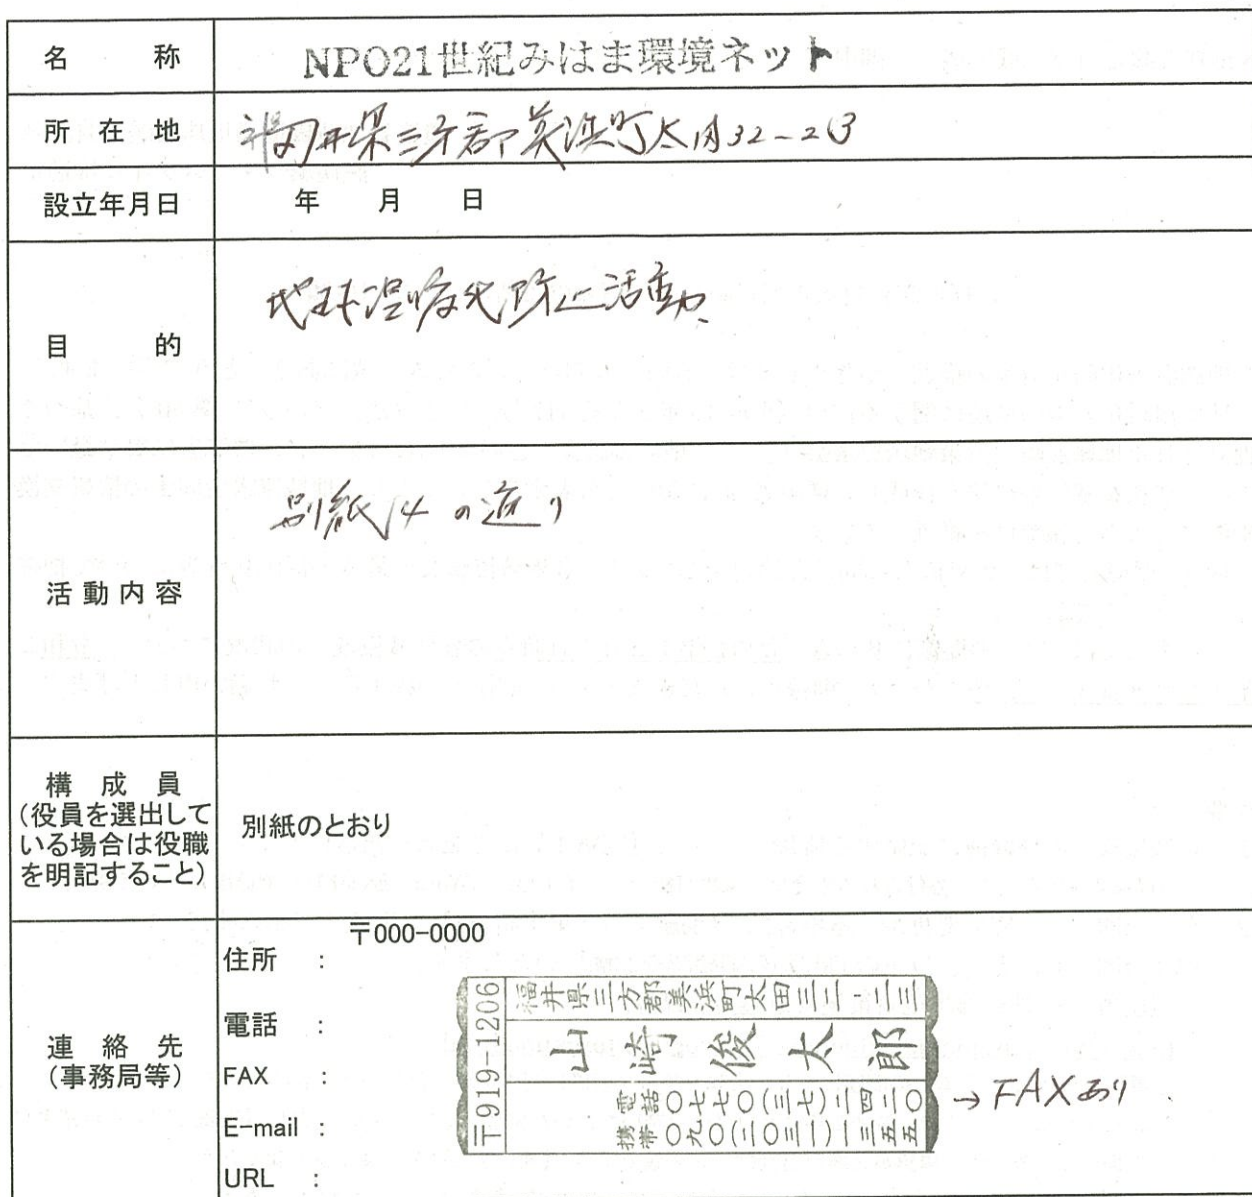 名 称 NPO21世紀みはま環境ネット
所 在 地 福井県三方郡美浜町太田32-23
設立年月日 年 月 日
目 的 地球温暖化防止活動
活 動 内 容 別紙14の通り
構 成 員
(役員を選出して
いる場合は役職
を明記すること)
別紙のとおり
連 絡 先
(事務局等)
〒000-0000
住所 :
電話 :
FAX :
E-mail :
URL :
〒919-1206
福井県三方郡美浜町太田三二-二三
山﨑俊太郎
電話〇七七〇(三七)二四二〇
携帯〇九〇(二〇三二)一三五五
→FAXあり